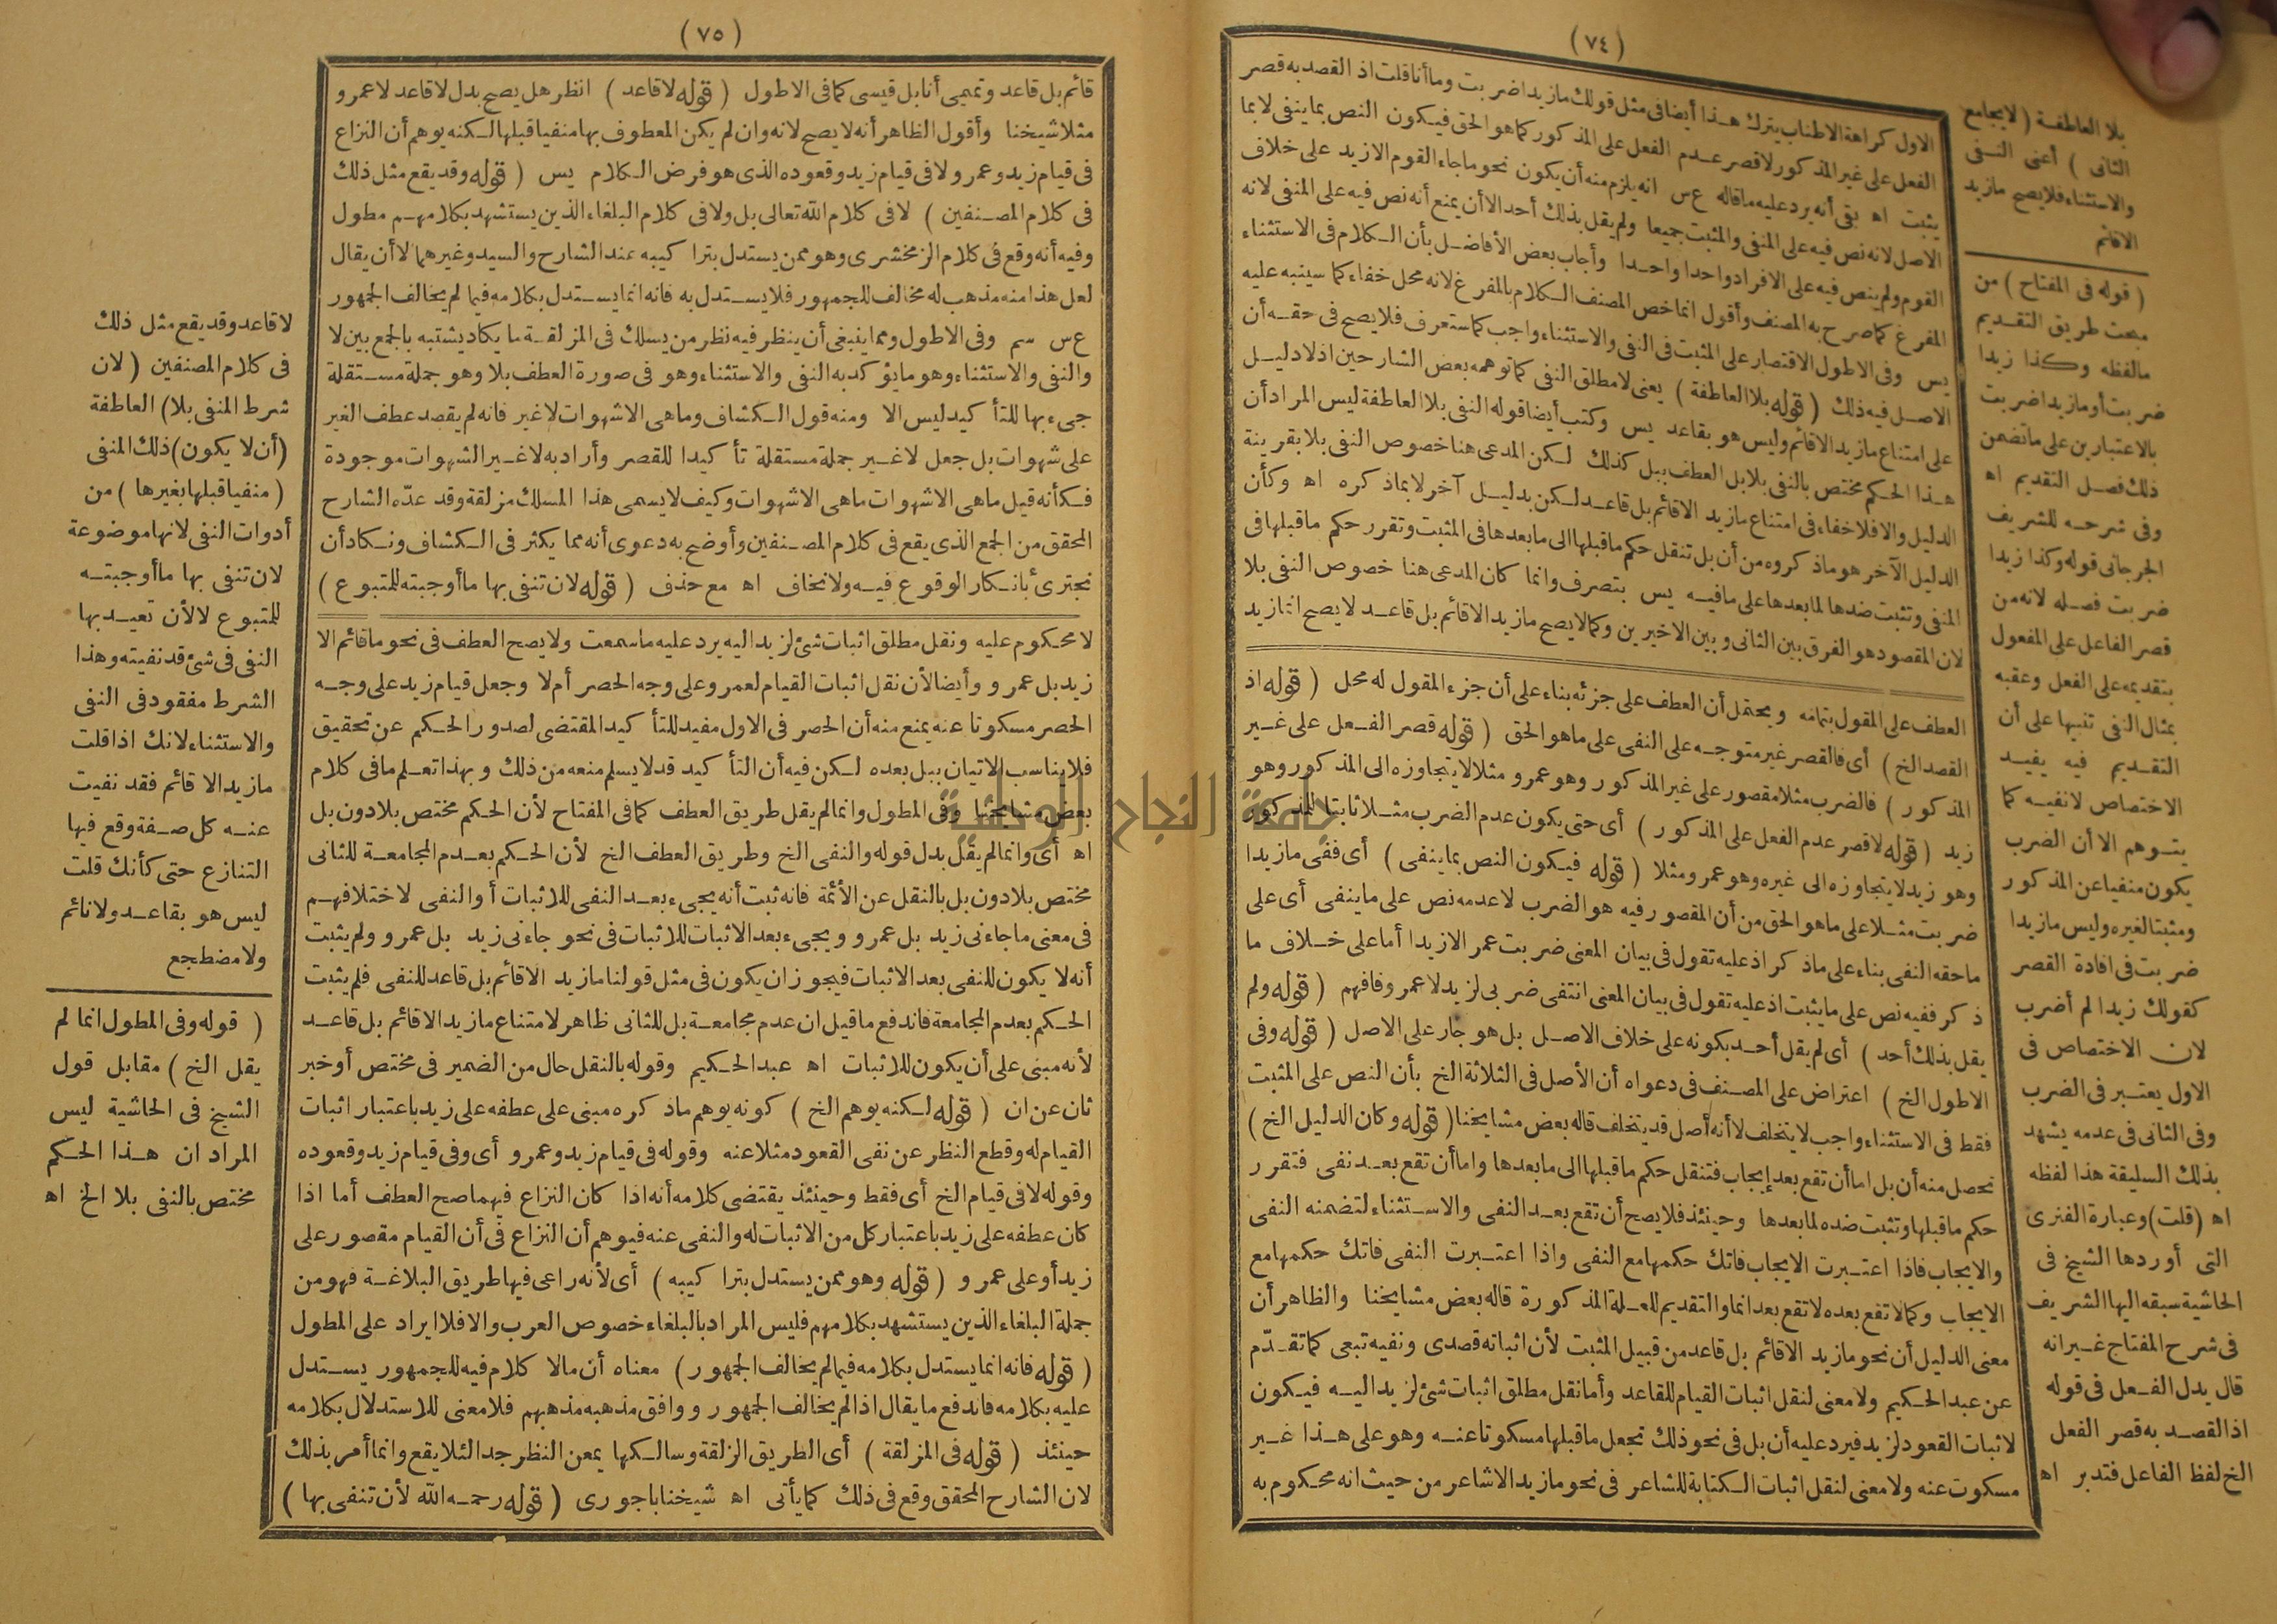 ( ٧٤ )
الاول كراهة الاطناب يترك هذا أيضا فى مثل قولك ما زيدا ضربت وما أنا قلت اذ القصد به قصر
الفعل على غير المذكور لا قصر عدم الفعل على المذكور كما هو الحق فيكون النص بما ينفى لا بما
يثبت اه بقى أنه يرد عليه ما قاله ع س انه يلزم منه أن يكون نحو ما جاء القوم الا زيد على خلاف
الاصل لانه نص فيه على المنفى والمثبت جميعا ولم يقل بذلك أحد الا أن يمنع أنه نص فيه على المنفى لانه
القوم ولم ينص فيه على الافراد واحدا واحدا وأجاب بعض الأفاضل بأن الكلام فى الاستثناء
المفرغ كما صرح به المصنف وأقول انما خص المصنف الكلام بالمفرغ لانه محل خفاء كما سينبه عليه
يس وفى الاطول الاقتصار على المثبت فى النفى والاستثناء واجب كما ستعرف فلا يصح فى حقه أن
الاصل فيه ذلك ( قوله بلا العاطفة ) يعنى لا مطلق النفى كما توهمه بعض الشارحين اذ لا دليل
على امتناع ما زيد الا قائم وليس هو بقاعد يس وكتب أيضا قوله النفى بلا العاطفة ليس المراد أن
هذا الحكم مختص بالنفى بلا بل العطف ببل كذلك لكن المدعى هنا خصوص النفى بلا بقرينة
الدليل والا فلا خفاء فى امتناع ما زيد الا قائم بل قاعد لكن بدليل آخر لا بما ذكره اه وكأن
الدليل الآخر هو ما ذكروه من أن بل تنقل حكم ما قبلها الى ما بعدها فى المثبت وتقرر حكم ما قبلها فى
المنفى وتثبت ضدها لما بعدها على ما فيه يس بتصرف وانما كان المدعى هنا خصوص النفى بلا
لان المقصود هو الفرق بين الثانى وبين الاخيرين وكما لا يصح ما زيد الا قائم بل قاعد لا يصح انما زيد
العطف على المقول بتمامه ويحتمل أن العطف على جزئه بناء على أن جزء المقول له محل ( قوله اذ
القصد الخ ) أى فالقصر غير متوجه على النفى على ما هو الحق ( قوله قصر الفعل على غير
المذكور ) فالضرب مثلا مقصور على غير المذكور وهو عمرو مثلا لا يتجاوزه الى المذكور وهو
زيد ( قوله لا قصر عدم الفعل على المذكور ) أى حتى يكون عدم الضرب مثلا ثابتا للمذكور
وهو زيد لا يتجاوزه الى غيره وهو عمرو مثلا ( قوله فيكون النص بما ينفى ) أى ففى ما زيدا
ضربت مثلا على ما هو الحق من أن المقصور فيه هو الضرب لا عدمه نص على ما ينفى أى على
ما حقه النفى بناء على ما ذكر اذ عليه تقول فى بيان المعنى ضربت عمرا لا زيدا أما على خلاف ما
ذكر ففيه نص على ما يثبت اذ عليه تقول فى بيان المعنى انتفى ضربى لزيد لا عمرو فافهم ( قوله ولم
يقل بذلك أحد ) أى لم يقل أحد بكونه على خلاف الاصل بل هو جار على الاصل ( قوله وفى
الاطول الخ ) اعتراض على المصنف فى دعواه أن الأصل فى الثلاثة الخ بأن النص على المثبت
فقط فى الاستثناء واجب لا يتخلف لا أنه أصل قد يتخلف قاله بعض مشايخنا ( قوله وكان الدليل الخ )
تحصل منه أن بل اما أن تقع بعد إيجاب فتنقل حكم ما قبلها الى ما بعدها واما أن تقع بعد نفى فتقرر
حكم ما قبلها وتثبت ضده لما بعدها وحينئذ فلا يصح أن تقع بعد النفى والاستثناء لتضمنه النفى
والايجاب فاذا اعتبرت الايجاب فاتك حكمها مع النفى واذا اعتبرت النفى فاتك حكمها مع
الايجاب وكما لا تقع بعده لا تقع بعد انما والتقديم للعلة المذكورة قاله بعض مشايخنا والظاهر أن
معنى الدليل أن نحو ما زيد الا قائم بل قاعد من قبيل المثبت لأن اثباته قصدى ونفيه تبعى كما تقدّم
عن عبد الحكيم ولا معنى لنقل اثبات القيام للقاعد وأما نقل مطلق اثبات شئ لزيد اليه فيكون
لاثبات القعود لزيد فيرد عليه أن بل فى نحو ذلك تجعل ما قبلها مسكوتا عنه وهو على هذا غير
مسكوت عنه ولا معنى لنقل اثبات الكتابة للشاعر فى نحو ما زيد الا شاعر من حيث انه محكوم به
بلا العاطفة ( لا يجامع
الثانى ) أعنى النفى
والاستثناء فلا يصح ما زيد
الا قائم
( قوله فى المفتاح ) من
مبحث طريق التقديم
ما لفظه وكذا زيدا
ضربت أو ما زيدا ضربت
بالاعتبارين على ما تضمن
ذلك فصل التقديم اه
وفى شرحه للشريف
الجرجانى قوله وكذا زيدا
ضربت فصله لانه من
قصر الفاعل على المفعول
بتقديمه على الفعل وعقبه
بمثال النفى تنبيها على أن
التقديم فيه يفيد
الاختصاص لا نفيه كما
يتوهم الا أن الضرب
يكون منفيا عن المذكور
ومثبتا لغيره وليس ما زيدا
ضربت فى افادة القصر
كقولك زيدا لم أضرب
لان الاختصاص فى
الاول يعتبر فى الضرب
وفى الثانى فى عدمه يشهد
بذلك السليقة هذا لفظه
اه (قلت) وعبارة الفنرى
التى أوردها الشيخ فى
الحاشية سبقه اليها الشريف
فى شرح المفتاح غير انه
قال بدل الفعل فى قوله
اذ القصد به قصر الفعل
الخ لفظ الفاعل فتدبر اه
( ٧٥ )
قائم بل قاعد وتميمى أنا بل قيسى كما فى الاطول ( قوله لا قاعد ) انظر هل يصح بدل لا قاعد لا عمرو
مثلا شيخنا وأقول الظاهر أنه لا يصح لانه وان لم يكن المعطوف بها منفيا قبلها لكنه يوهم أن النزاع
فى قيام زيد وعمرو لا فى قيام زيد وقعوده الذى هو فرض الكلام يس ( قوله وقد يقع مثل ذلك
فى كلام المصنفين ) لا فى كلام الله تعالى بل ولا فى كلام البلغاء الذين يستشهد بكلامهم مطول
وفيه أنه وقع فى كلام الزمخشرى وهو ممن يستدل بتراكيبه عند الشارح والسيد وغيرهما لا أن يقال
لعل هذا منه مذهب له مخالف للجمهور فلا يستدل به فانه انما يستدل بكلامه فيما لم يخالف الجمهور
ع س سم وفى الاطول ومما ينبغى أن ينظر فيه نظر من يسلك فى المزلقة ما يكاد يشتبه بالجمع بين لا
والنفى والاستثناء وهو ما يؤكد به النفى والاستثناء وهو فى صورة العطف بلا وهو جملة مستقلة
جىء بها للتأكيد ليس الا ومنه قول الكشاف وما هى الا شهوات لا غير فانه لم يقصد عطف الغير
على شهوات بل جعل لا غير جملة مستقلة تأكيدا للقصر وأراد به لا غير الشهوات موجودة
فكأنه قيل ما هى الا شهوات ما هى الا شهوات وكيف لا يسمى هذا المسلك مزلقة وقد عدّه الشارح
المحقق من الجمع الذى يقع فى كلام المصنفين وأوضح به دعوى أنه مما يكثر فى الكشاف ونكاد أن
نجترئ بانكار الوقوع فيه ولا نخاف اه مع حذف ( قوله لان تنفى بها ما أوجبته للمتبوع )
لا محكوم عليه ونقل مطلق اثبات شئ لزيد اليه يرد عليه ما سمعت ولا يصح العطف فى نحو ما قائم الا
زيد بل عمرو وأيضا لأن نقل اثبات القيام لعمرو على وجه الحصر أم لا وجعل قيام زيد على وجه
الحصر مسكوتا عنه يمنع منه أن الحصر فى الاول مفيد للتأكيد المقتضى لصدور الحكم عن تحقيق
فلا يناسب الاتيان ببل بعده لكن فيه أن التأكيد قد لا يسلم منعه من ذلك وبهذا تعلم ما فى كلام
بعض مشايخنا وفى المطول وانما لم يقل طريق العطف كما فى المفتاح لأن الحكم مختص بلا دون بل
اه أى وانما لم يقل بدل قوله والنفى الخ وطريق العطف الخ لأن الحكم بعدم المجامعة للثانى
مختص بلا دون بل بالنقل عن الأئمة فانه ثبت أنه يجىء بعد النفى للاثبات أو النفى لاختلافهم
فى معنى ما جاءنى زيد بل عمرو ويجىء بعد الاثبات للاثبات فى نحو جاءنى زيد بل عمرو ولم يثبت
أنه لا يكون للنفى بعد الاثبات فيجوز ان يكون فى مثل قولنا ما زيد الا قائم بل قاعد للنفى فلم يثبت
الحكم بعدم المجامعة فاندفع ما قيل ان عدم مجامعة بل للثانى ظاهر لامتناع ما زيد الا قائم بل قاعد
لأنه مبنى على أن يكون للاثبات اه عبد الحكيم وقوله بالنقل حال من الضمير فى مختص أو خبر
ثان عن ان ( قوله لكنه يوهم الخ ) كونه يوهم ما ذكره مبنى على عطفه على زيد باعتبار اثبات
القيام له وقطع النظر عن نفى القعود مثلا عنه وقوله فى قيام زيد وعمرو أى وفى قيام زيد وقعوده
وقوله لا فى قيام الخ أى فقط وحينئذ يقتضى كلامه أنه اذا كان النزاع فيهما صح العطف أما اذا
كان عطفه على زيد باعتبار كل من الاثبات له والنفى عنه فيوهم أن النزاع فى أن القيام مقصور على
زيد أو على عمرو ( قوله وهو ممن يستدل بتراكيبه ) أى لأنه راعى فيها طريق البلاغة فهو من
جملة البلغاء الذين يستشهد بكلامهم فليس المراد بالبلغاء خصوص العرب والا فلا ايراد على المطول
( قوله فانه انما يستدل بكلامه فيما لم يخالف الجمهور ) معناه أن ما لا كلام فيه للجمهور يستدل
عليه بكلامه فاندفع ما يقال اذا لم يخالف الجمهور ووافق مذهبه مذهبهم فلا معنى للاستدلال بكلامه
حينئذ ( قوله فى المزلقة ) أى الطريق الزلقة وسالكها يمعن النظر جدا لئلا يقع وانما أمر بذلك
لان الشارح المحقق وقع فى ذلك كما يأتى اه شيخنا باجورى ( قوله رحمه الله لأن تنفى بها )
لا قاعد وقد يقع مثل ذلك
فى كلام المصنفين ( لان
شرط المنفى بلا) العاطفة
(أن لا يكون) ذلك المنفى
( منفيا قبلها بغيرها ) من
أدوات النفى لانها موضوعة
لان تنفى بها ما أوجبته
للمتبوع لا لأن تعيد بها
النفى فى شئ قد نفيته وهذا
الشرط مفقود فى النفى
والاستثناء لانك اذا قلت
ما زيد الا قائم فقد نفيت
عنه كل صفة وقع فيها
التنازع حتى كأنك قلت
ليس هو بقاعد ولا نائم
ولا مضطجع
( قوله وفى المطول انما لم
يقل الخ ) مقابل قول
الشيخ فى الحاشية ليس
المراد ان هذا الحكم
مختص بالنفى بلا الخ اه
جامعة النجاح الوطنية